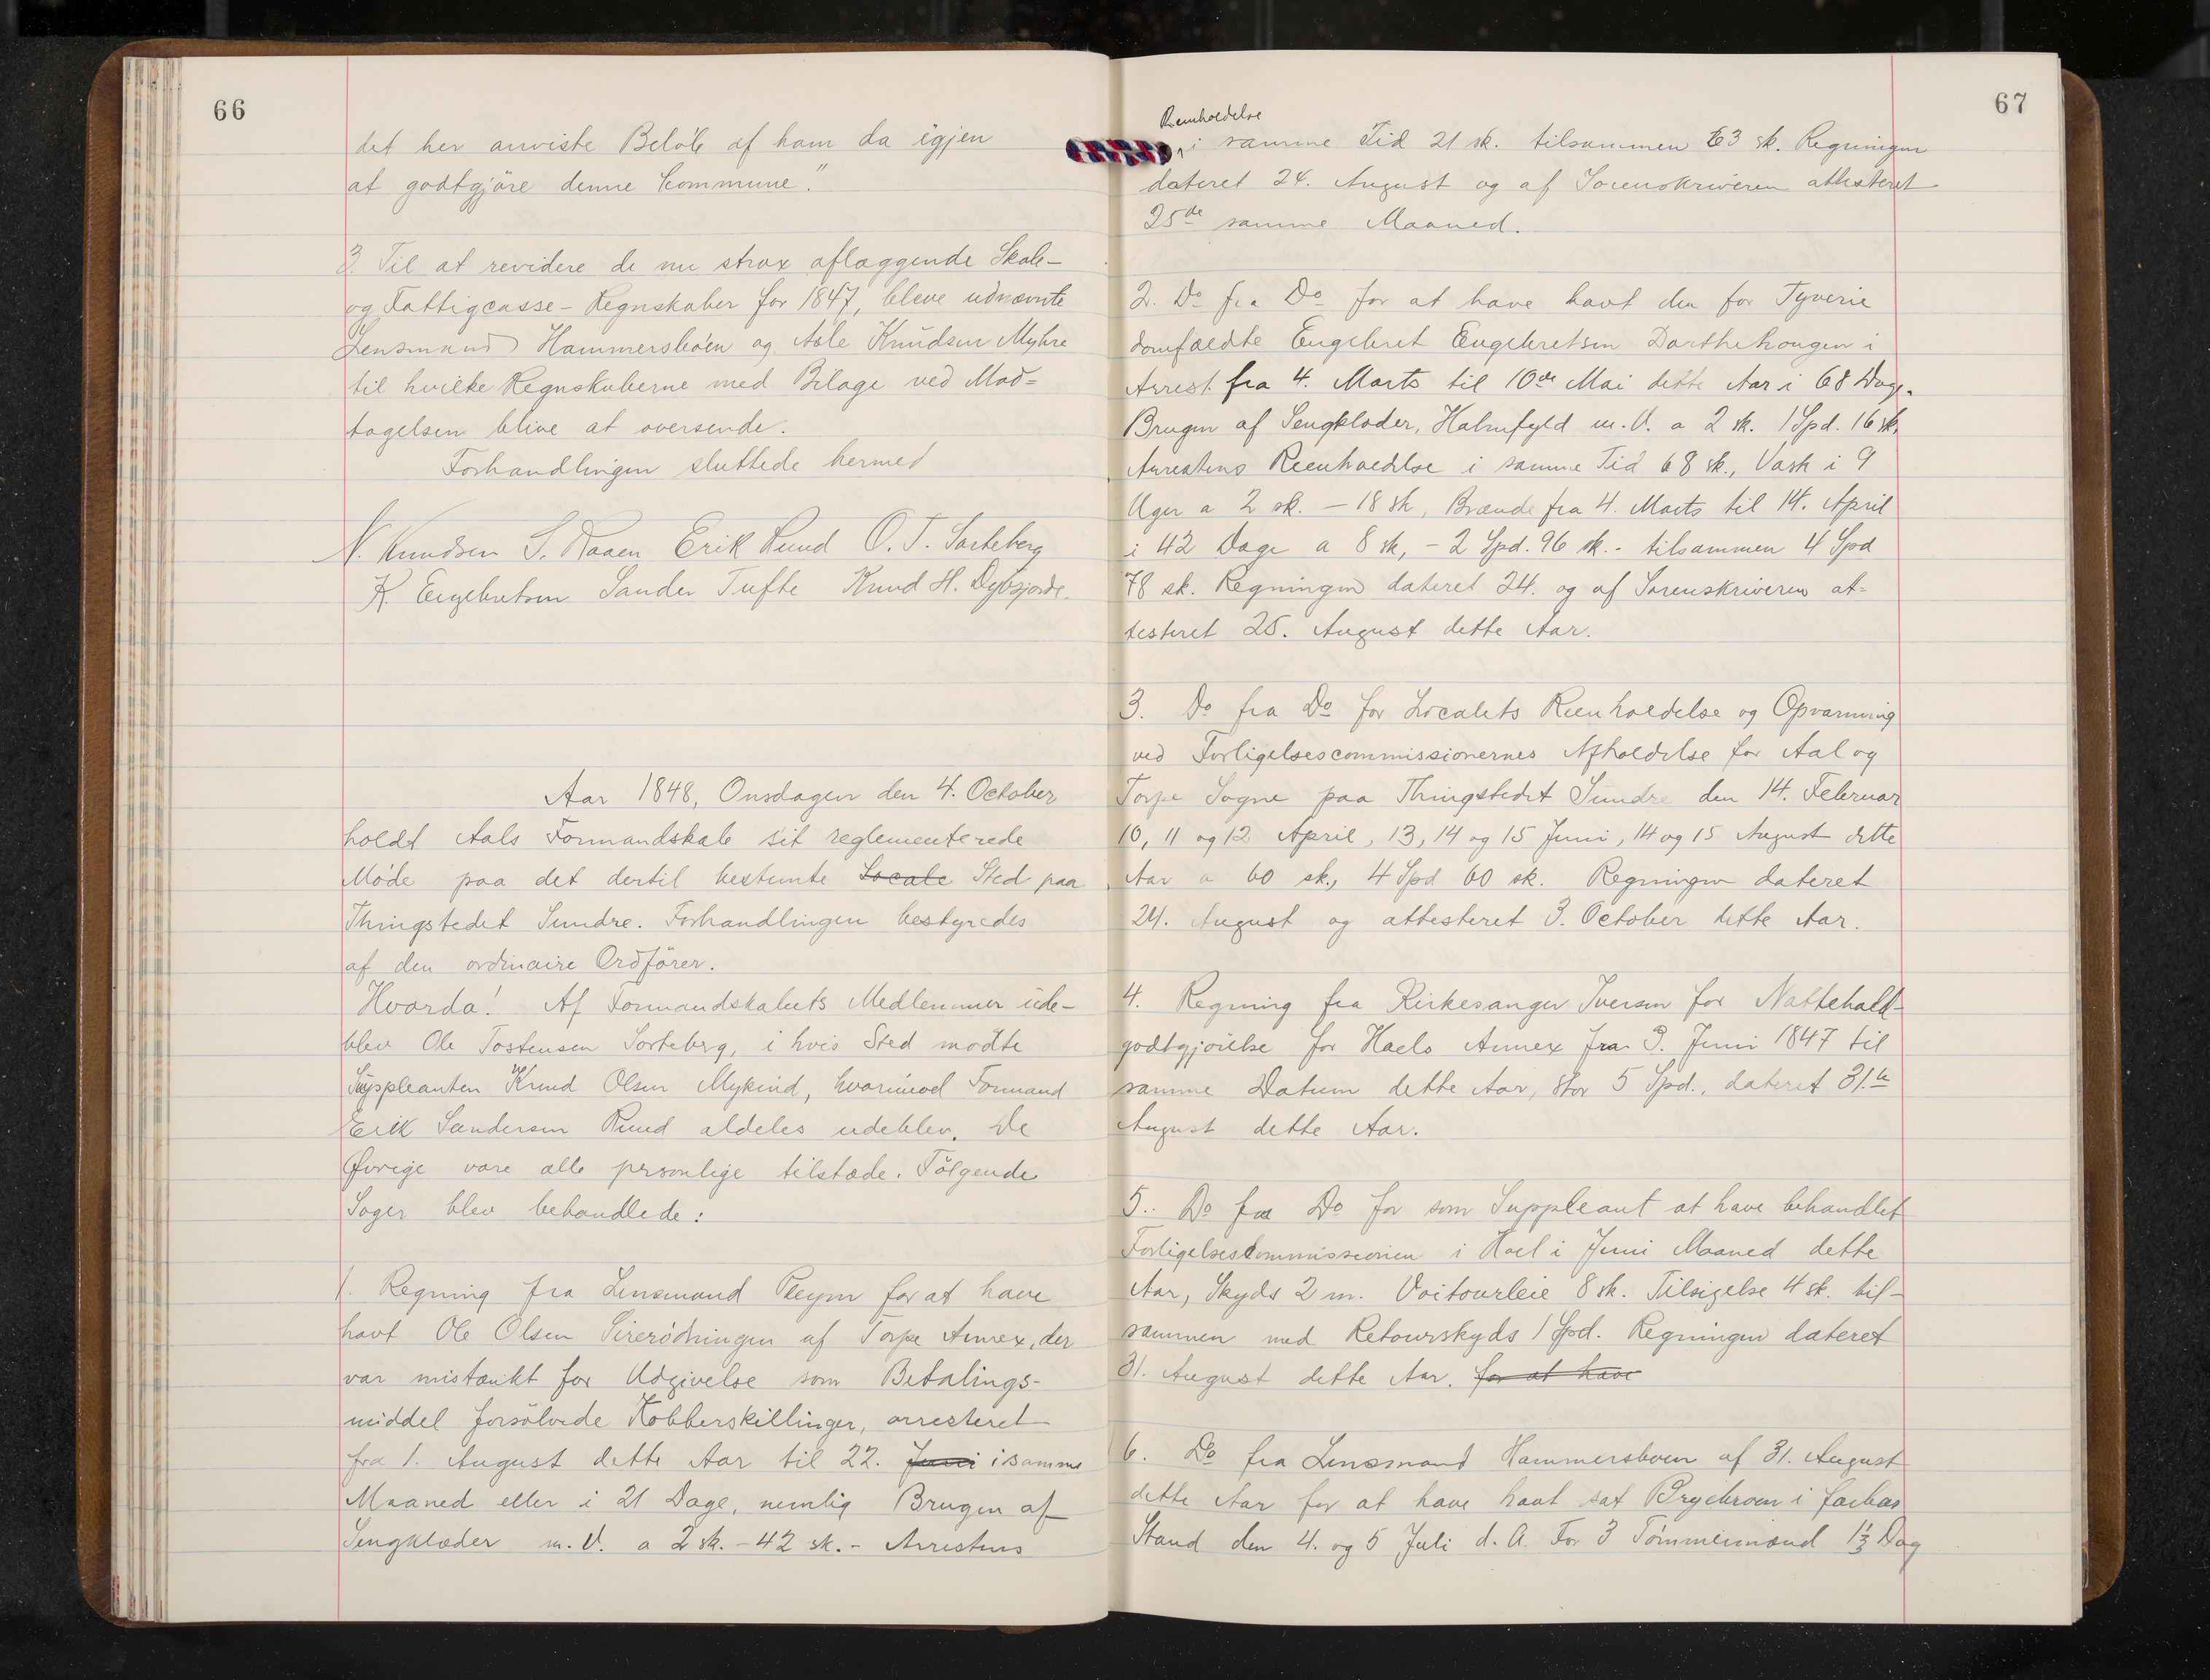 66
det her anviste Beløb af ham da igjen
at godtgjöre denne Commune."
3. Til at revidere de nu strax aflæggende Skole-
og Fattigcasse-Regnskaber for 1847, bleve udnævnte
Lensmand Hammersbøen og Asle Knudsen Myhre
til hvilke Regnskaberne med Bilage ved Mod=
tagelsen blive at oversende.
Forhandlingen sluttede hermed
N. Knudsen S. Raaen Erik Ruud O. T. Sorteberg
K. Engebretsen Sander Tufte Knud H. Dybsjorde.
Aar 1848, Onsdagen den 4. October
holdt Aals Formandskab sit reglementerede
Møde paa det dertil bestemte Locale Sted paa
Thingstedet Sundre. Forhandlingen bestyredes
af den ordinaire Ordförer.
Hvorda! Af Formandskabets Medlemmer ude-
blev Ole Tostensen Sorteberg, i hvis Sted mødte
Suppleanten Knud Olsen Mykind, hvorimod Formand
Erik Sandersen Ruud aldeles udeblev. De
Øvrige vare alle personlige tilstæde. Fölgende
Sager blev behandlede:
1. Regning fra Lensmand Pleym for at have
havt Ole Olsen af Torpe Annex, der
var mistænkt for Udgivelse som Betalings-
middel forsölvede Kobberskillinger, arresteret
fra 1. August dette Aar til 22. Juni i samme
Maaned eller i 21 Dage, nemlig Brugen af
Sengklæder m. V. a 2 sk. - 42 sk. - Arrestens
67
Reenholdelse
i samme Tid 21 sk. tilsammen 63 sk. Regningen
dateret 24. August og af Sorenskriveren attesteret
25de samme Maaned.
2. Do fra Do for at have havt den for Tyverie
domfældte Engebret Engebretsen Dorthehougen i
Arrest fra 4. Marts til 10de Mai dette Aar i 68 Dage.
Brugen af Sengklæder, Halmfyld m. V. a 2 sk. 1 Spd. 16 sk.
Arrestens Reenholdelse i samme Tid 68 sk., Vask i 9
Uger a 2 sk. - 18 sk, Brænde fra 4. Marts til 14. April
i 42 Dage a 8 sk, - 2 Spd. 96 sk. - tilsammen 4 Spd
78 sk. Regningen dateret 24. og af Sorenskriveren at=
testeret 25. August dette Aar.
3. Do fra Do for Localets Reenholdelse og Opvarming
ved Forligelsescommissionernes Afholdelse for Aal og
Torpe Sogne paa Thingstedet Sundre den 14. Februar
10, 11 og 12 April, 13, 14 og 15 Juni, 14 og 15 August dette
Aar a 60 sk., 4 Spd 60 sk. Regningen dateret
24. August og attesteret 3. October dette Aar.
4. Regning fra Kirkesanger Iversen for Nattehold-
godtgjørelse for Hols Annex fra 3. Juni 1847 til
samme Datum dette Aar, stor 5 Spd., dateret 31.te
August dette Aar.
5. Do fra Do for som Suppleant at have behandlet
Forligelsescommissionen i Hol i Juni Maaned dette
Aar, Skyds 2 m. Voitourleie 8 sk. Tilsigelse 4 sk. til-
sammen med Retourskyds 1 Spd. Regningen dateret
31. August dette Aar. for at have
6. Do fra Lensmand Hammersbøen af 31. August
dette Aar for at have havt sat i farbar
Stand den 4. og 5 Juli d. A. For 3 Tømmermænd 1⅓ Dag